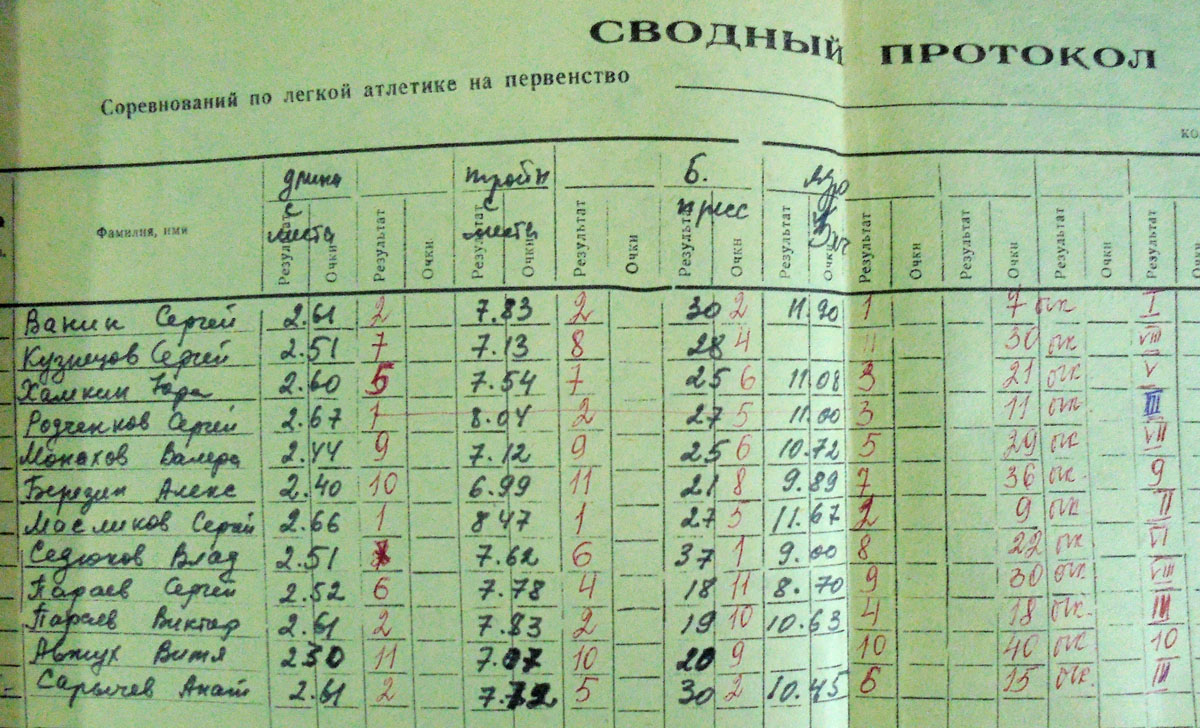 СВОДНЫЙ ПРОТОКОЛ
Соревнований по легкой атлетике на первенство
Фамилия, имя длина с места тройн с места Б. пресс
Результат Очки Результат Очки Результат Очки Результат Очки Результат Очки Результат Очки Результат Очки Результат Очки Результат Очки Результат
Ванин Сергей 2.61 2 7.83 2 30 2 11.90 1 7 очк I
Кузнецов Сергей 2.51 7 7.13 8 28 4 30 очк VIII
Хамкин Юра 2.60 5 7.54 7 25 6 11.08 3 21 очк V
Родченков Сергей 2.67 1 8.04 2 27 5 11.00 3 11 очк III
Монахов Валера 2.44 9 7.12 9 25 6 10.72 5 29 очк VII
Березин Алекс 2.40 10 6.99 11 21 8 9.89 7 36 очк 9
Масликов Сергей 2.66 1 8.47 1 27 5 11.67 2 9 очк II
Седюков Влад 2.51 7.62 6 37 1 9.00 8 22 очк VI
Параев Сергей 2.52 6 7.78 4 18 11 8.70 9 30 очк VIII
Параев Виктор 2.61 2 7.83 2 19 10 10.63 4 18 очк III
Автух Витя 2.30 11 7.07 10 20 9 10 40 очк 10
Сарычев Анат 2.61 2 7.72 5 30 2 10.45 6 15 очк III